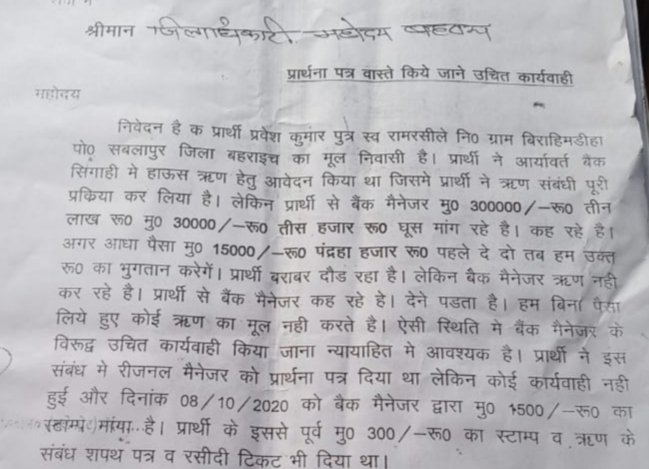 श्रीमान जिलाधिकारी महोदय बहराइच
प्रार्थना पत्र वास्ते किये जाने उचित कार्यवाही
महोदय
निवेदन है क प्रार्थी प्रवेश कुमार पुत्र स्व रामरसीले नि0 ग्राम बिराहिमडीहा
पो0 सबलापुर जिला बहराइच का मूल निवासी है। प्रार्थी ने आर्यावर्त बैक
सिंगाही मे हाऊस ऋण हेतु आवेदन किया था जिसमे प्रार्थी ने ऋण संबंधी पूरी
प्रक्रिया कर लिया है। लेकिन प्रार्थी से बैंक मैनेजर मु0 300000/–रू0 तीन
लाख रू0 मु0 30000/–रू0 तीस हजार रू0 घूस मांग रहे है। कह रहे है।
अगर आधा पैसा मु0 15000/–रू0 पंद्रहा हजार रू0 पहले दे दो तब हम उक्त
रू0 का भुगतान करेगें। प्रार्थी बराबर दौड रहा है। लेकिन बैक मैनेजर ऋण नही
कर रहे है। प्रार्थी से बैंक मैनेजर कह रहे हे। देने पडता है। हम बिना पैसा
लिये हुए कोई ऋण का मूल नही करते है। ऐसी स्थिति मे बैंक मैनेजर के
विरूद्व उचित कार्यवाही किया जाना न्यायाहित मे आवश्यक है। प्रार्थी ने इस
संबंध मे रीजनल मैनेजर को प्रार्थना पत्र दिया था लेकिन कोई कार्यवाही नही
हुई और दिनांक 08/10/2020 को बैक मैनेजर द्वारा मु0 1500/–रू0 का
स्टाम्प मांगा है। प्रार्थी के इससे पूर्व मु0 300/–रू0 का स्टाम्प व ऋण के
संबंध शपथ पत्र व रसीदी टिकट भी दिया था।